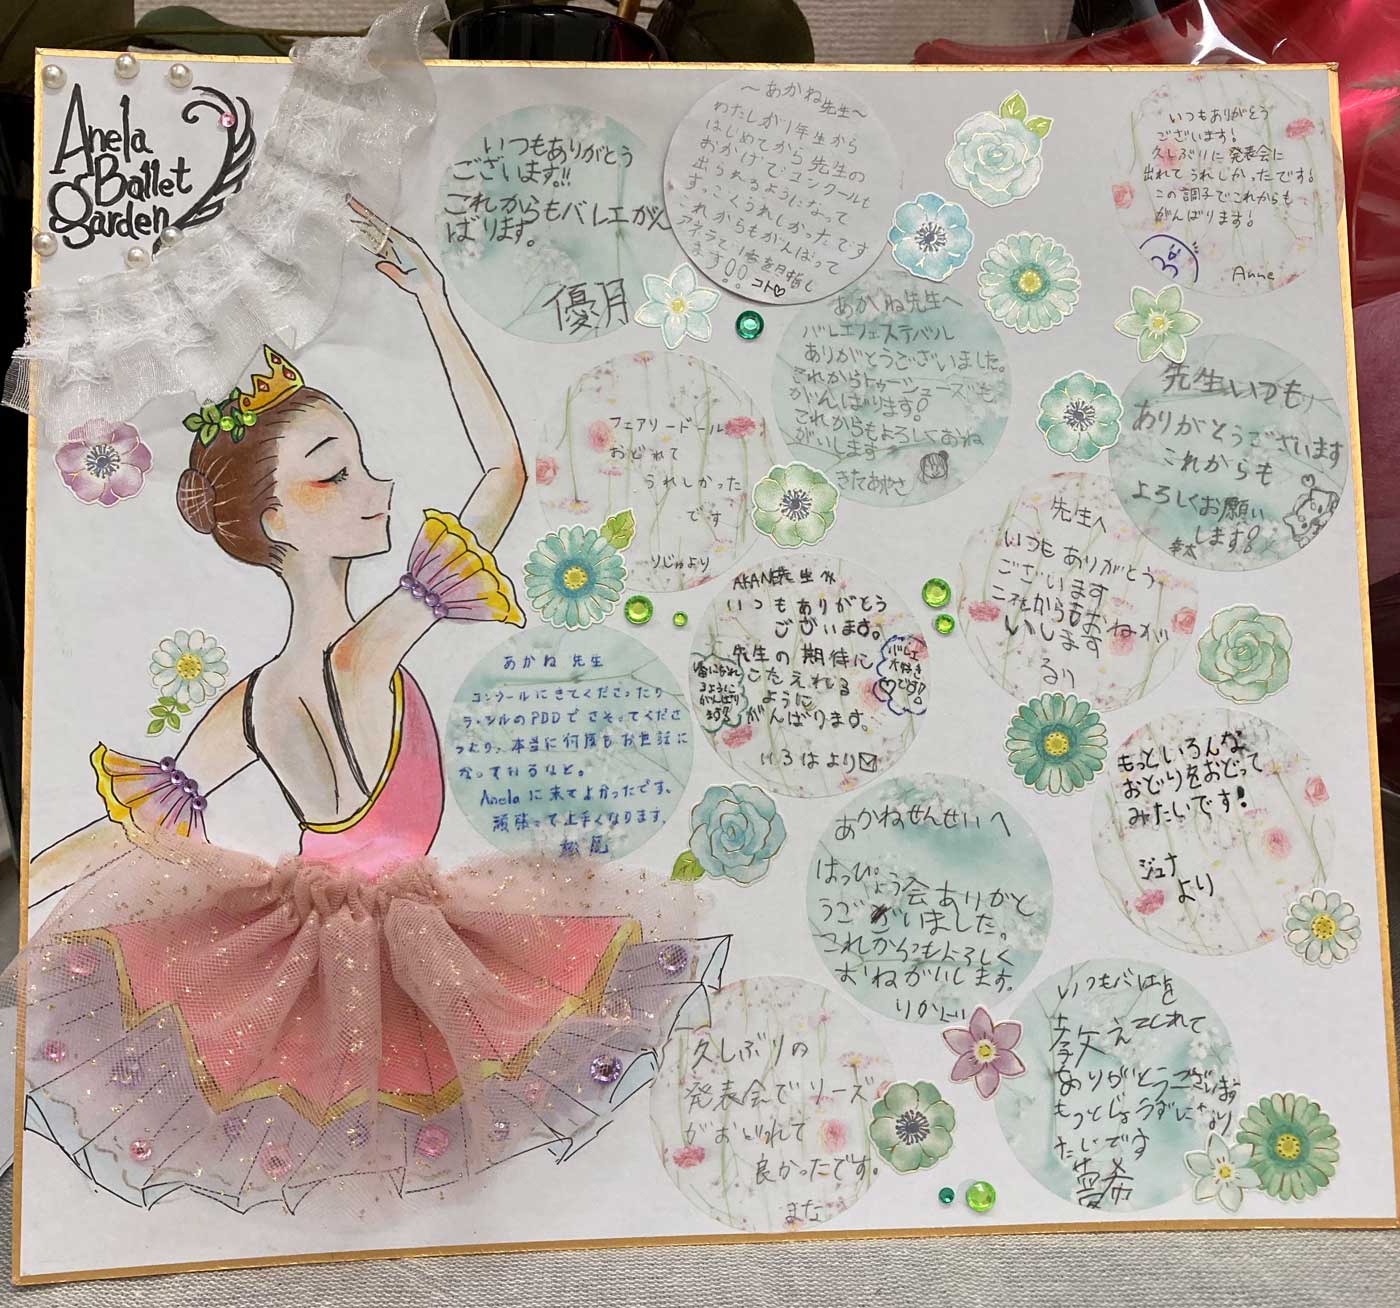 Anela
Ballet
Garden
いつもありがとう
ございます!!
これからもバレエがん
ばります。
優月
～あかね先生～
わたしが1年生から
はじめてから先生の
おかげでコンクールも
出られるようになって
すっごくうれしかったです
これからもがんばって
アネラで1番を目指し
ます!!
コト♡
いつもありがとう
ございます!
久しぶりに発表会に
出れてうれしかったです!
この調子でこれからも
がんばります!
Anne
あかね先生へ
バレエフェスティバル
ありがとうございました。
これからトゥーシューズも
がんばります!
これからもよろしくおね
がいします
きたあやさ
フェアリードール
おどれて
うれしかった
です
りじゅより
先生いつも
ありがとうございます
これからも
よろしくお願い
します!
先生へ
いつもありがとう
ございます
これからもおねがい
いします
るり
AKANE先生へ
いつもありがとう
ございます。
先生の期待に
こたえれる
ように
がんばります。
いろはより
1番になれ
るように
がんばり
ます!
バレエ
大好き
です!
あかね 先生
コンクールにきてくださったり
ラ・シルのPDDでさそってくださ
ったり、本当に何度もお世話に
なっております。
Anelaに来てよかったです。
頑張って上手くなります。
松尾
もっといろんな
おどりをおどって
みたいです!
ジュナ
より
あかねせんせいへ
はっぴょう会ありがと
うございました。
これからもよろしく
おねがいします。
りかより
久しぶりの
発表会でリーズ
がおどれて
良かったです。
まな
いつもバレエを
教えてくれて
ありがとうございます
もっとじょうずになり
たいです
夢希